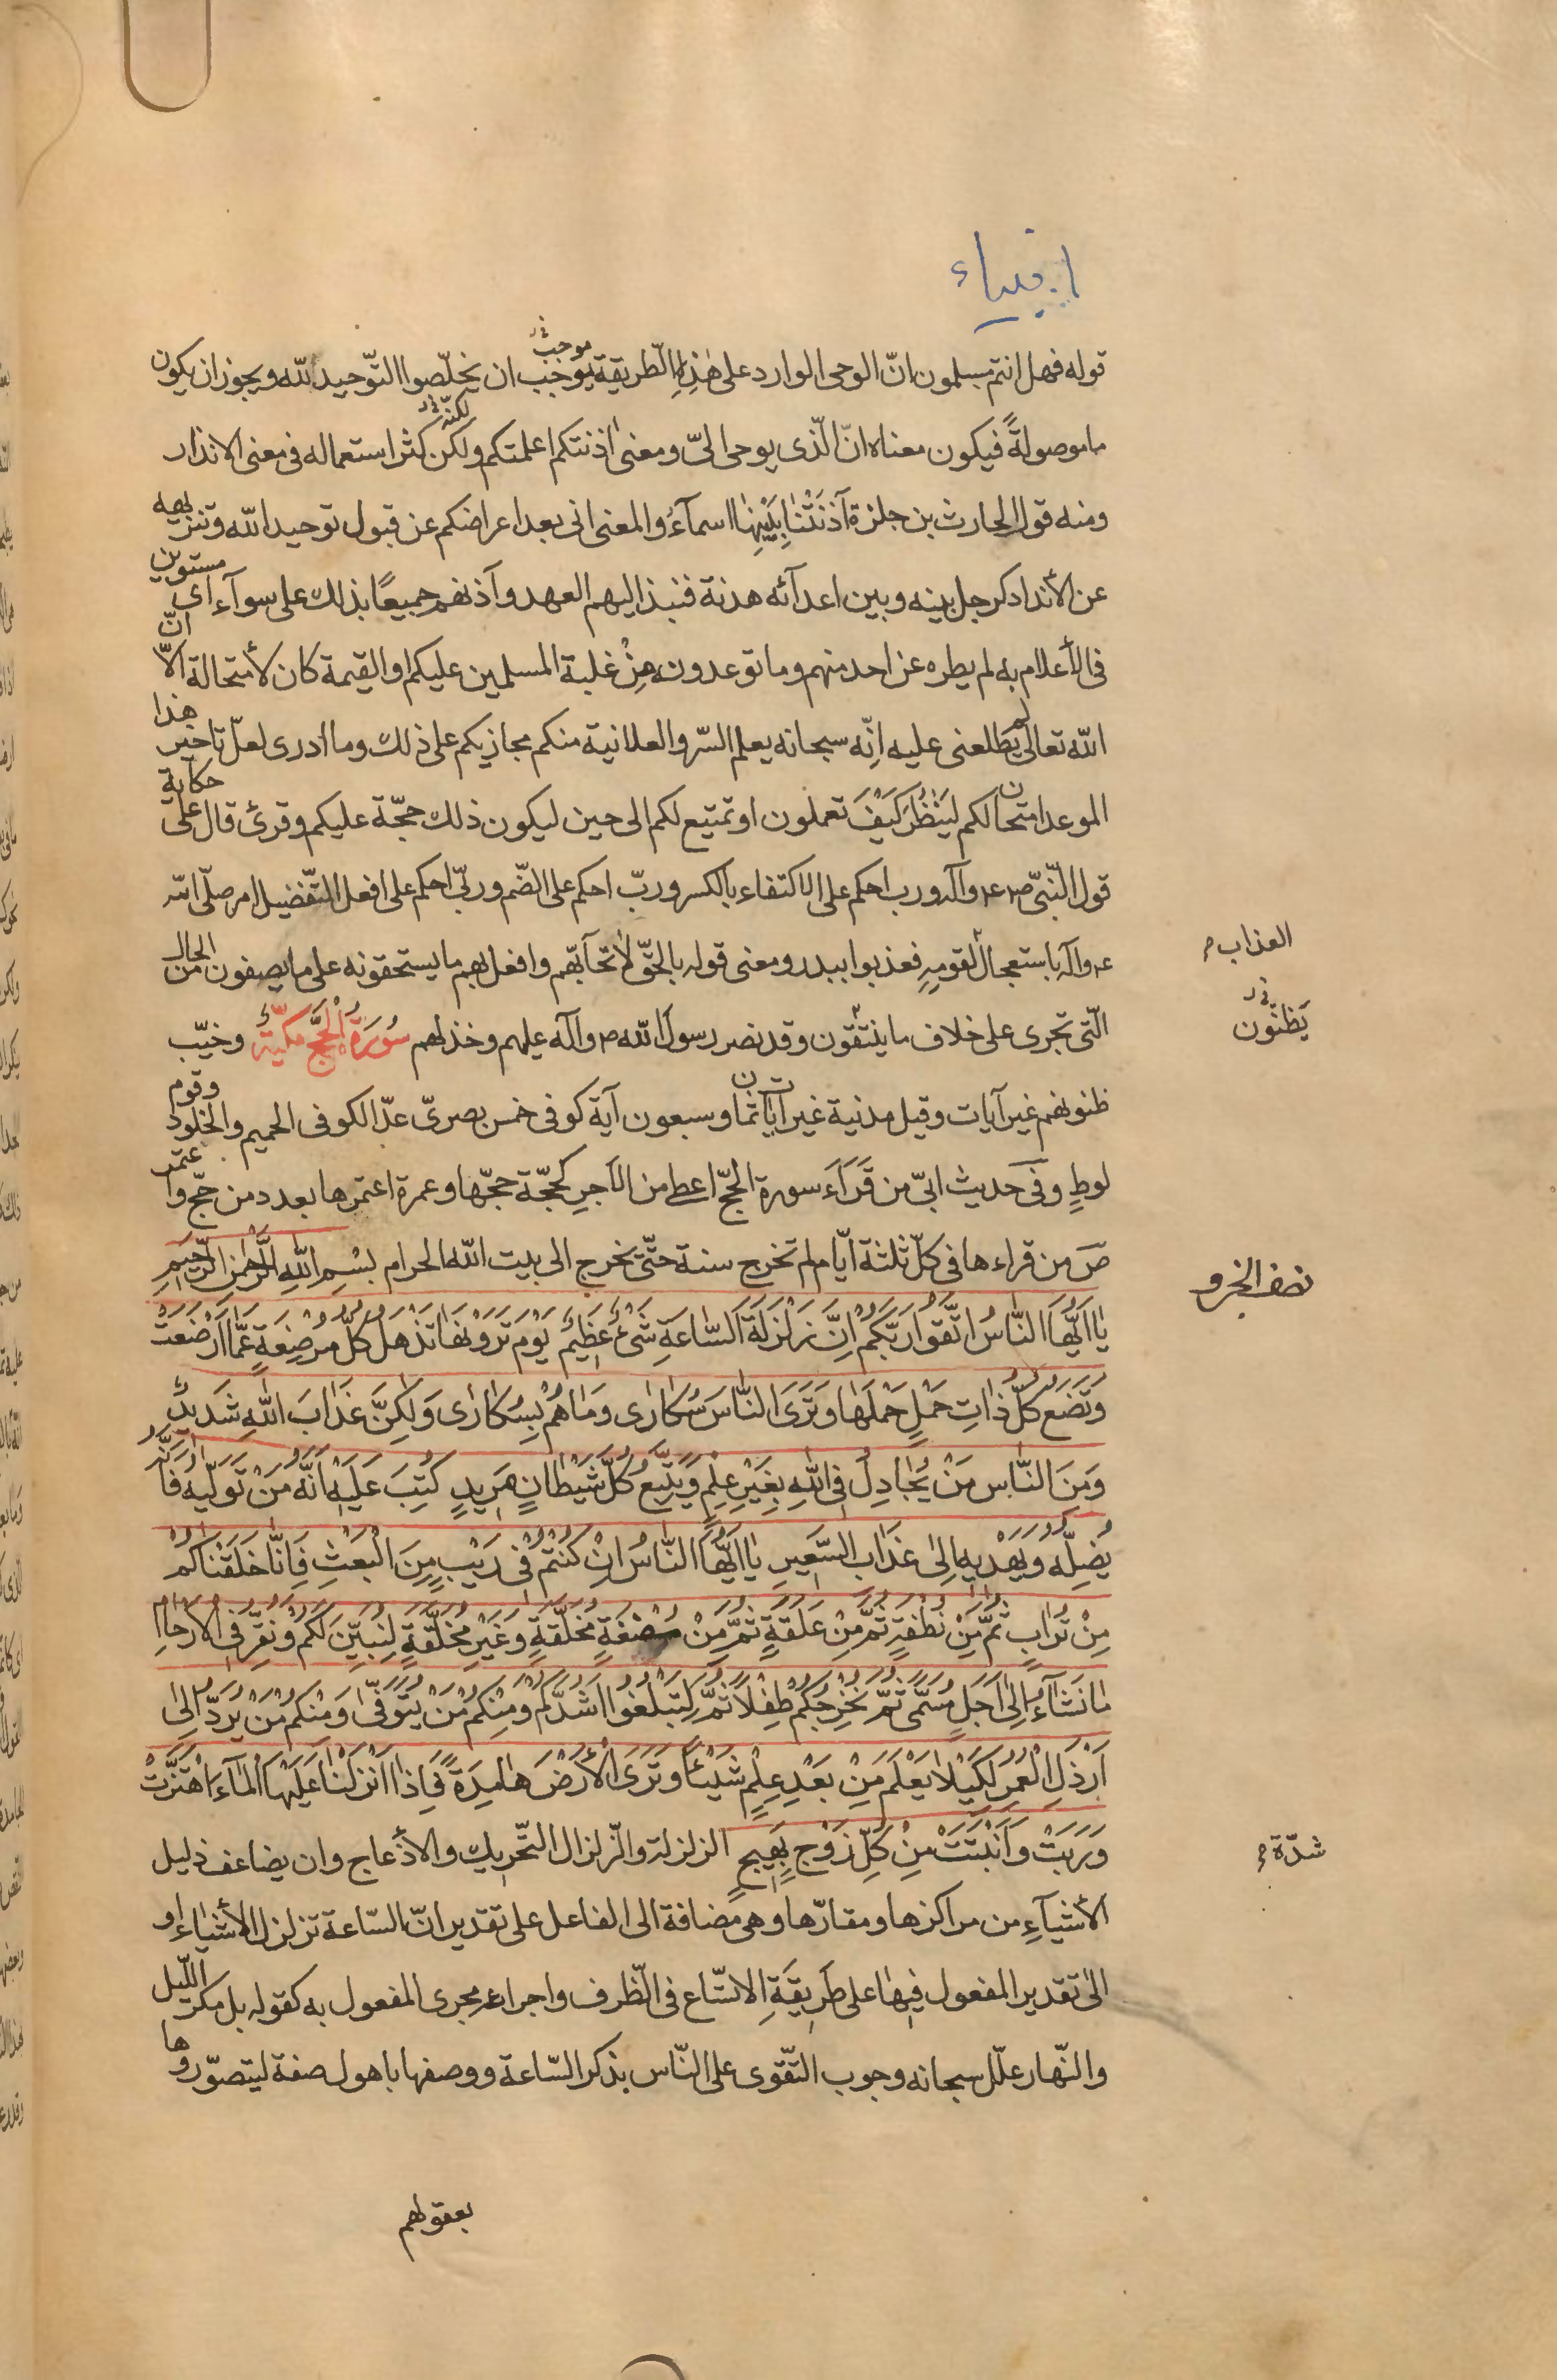 انبیاء
قوله فهل انتم مسلمون انّ الوحى الوارد على هٰذِهِ الطّريقة يوجب ان يخلّصوا التّوحيد للّه ويجوز ان يكون
موجب
ما موصولةً فيكون معناه انّ الّذى يوحى الىّ ومعنى اٰذنتكم اعلمتكم ولكن كثر استعماله فى معنى الانذار
لكنّه
ومنه قول الحارث بن حلزة آذَنَتْنٰا بِبَيْنِهٰا اسمآءُ والمعنى انى بعد اعراضكم عن قبول توحيد اللّه وتنزيهه
عن الأنداد كرجل بينه وبين اعدآئه هدنة فنبذ اليهم العهد وآذنهم جميعًا بذلك على سوآء اى مستوين
فى الأعلام به لم يطره عن احد منهم وما توعدون مِنْ غلبة المسلمين عليكم او القيمة كان لا محالة الّا انّ
اللّه تعالى لم يطلعنى عليه اِنّه سبحانه يعلم السّر والعلانية منكم مجازيكم على ذلك وما ادرى لعلّ تاخير هذا
الموعد امتحان لكم ليَنْظُرَ كَيْفَ تعملون او تمتيع لكم الى حين ليكون ذلك حجّة عليكم وقرئ قال على حكاية
قول النّبىّ ص ع وآله ورب احكم على الاكتفاء بالكسر وربّ احكم على الضّم وربّى احكم على افعل التّفضيل امر صلّى اللّه
ع وآله باستعجال لقومِهِ فعذبوا ببدر ومعنى قوله بالحقّ لا تحآبّهم وافعل بهم ما يستحقونه على ما يصفون من الحال
العذاب م
الّتى تجرى على خلاف ما ينتّقون وقد نصر رسول اللّه ص وآله عليهم وخذلهم سُورَةُ الْحَجِّ مكيّةٌ وخيّب
يَظنّون
ظنونهم غير آيات وقيل مدنية غير آيات ثمان وسبعون آية كوفى خمس بصرىّ عدّ الكوفى الحميم والخلود وقوم
لوطٍ وفى حديث ابىّ من قَرَاَءَ سورة الحجّ اعطى من الأجرِ كحجّة حجّها وعمرة اعتمرها بعدد من حجّ واعتمر
صَ من قراءها فى كلّ ثلثة ايّام لم تخرج سنة حتّى يخرج الى بيت اللّه الحرام بِسْمِ اللّٰهِ الرَّحْمٰنِ الرَّحِيمِ
نصف الجزو
يٰا اَيُّهَا النّٰاسُ اتَّقُوا رَبَّكُمْ اِنَّ زَلْزَلَةَ السّٰاعَةِ شَىْءٌ عَظِيمٌ يَوْمَ تَرَوْنَهٰا تَذْهَلُ كُلُّ مُرْضِعَةٍ عَمّٰا اَرْضَعَتْ
وَتَضَعُ كُلُّ ذٰاتِ حَمْلٍ حَمْلَهٰا وَتَرَى النّٰاسَ سُكٰارٰى وَمٰا هُمْ بِسُكٰارٰى وَلٰكِنَّ عَذٰابَ اللّٰهِ شَدِيدٌ
وَمِنَ النّٰاسِ مَنْ يُجٰادِلُ فِى اللّٰهِ بِغَيْرِ عِلْمٍ وَيَتَّبِعُ كُلَّ شَيْطٰانٍ مَرِيدٍ كُتِبَ عَلَيْهِ اَنَّهُ مَنْ تَوَلّٰيهُ فَاَنَّهُ
يُضِلُّهُ وَيَهْدِيهِ اِلىٰ عَذٰابِ السَّعِيرِ يٰا اَيُّهَا النّٰاسُ اِنْ كُنْتُمْ فِى رَيْبٍ مِنَ الْبَعْثِ فَاِنّٰا خَلَقْنٰاكُمْ
مِنْ تُرٰابٍ ثُمَّ مِنْ نُطْفَةٍ ثُمَّ مِنْ عَلَقَةٍ ثُمَّ مِنْ مُضْغَةٍ مُخَلَّقَةٍ وَغَيْرِ مُخَلَّقَةٍ لِنُبَيِّنَ لَكُمْ وَنُقِرُّ فِى الْاَرْحٰامِ
مٰا نَشٰآءُ اِلىٰ اَجَلٍ مُسَمًّى ثُمَّ نُخْرِجُكُمْ طِفْلًا ثُمَّ لِتَبْلُغُوا اَشُدَّكُمْ وَمِنْكُمْ مَنْ يُتَوَفّٰى وَمِنْكُمْ مَنْ يُرَدُّ اِلىٰ
اَرْذَلِ الْعُمُرِ لِكَيْلٰا يَعْلَمَ مِنْ بَعْدِ عِلْمٍ شَيْئًا وَتَرَى الْأَرْضَ هٰامِدَةً فَاِذٰا اَنْزَلْنٰا عَلَيْهَا الْمٰآءَ اهْتَزَّتْ
وَرَبَتْ وَاَنْبَتَتْ مِنْ كُلِّ زَوْجٍ بَهِيجٍ الزلزلة والزّلزال التّحريك والأذعاج وان يضاعف ذليل
شدّة م
الأشيآءِ من مراكزها ومقارّها وهى مضافة الى الفاعل على تقدير انّ السّاعة تزلزل الأشياء او
الى تقدير المفعول فيها على طَرِيقَةِ الاتّساع فى الظّرف واجراءه مجرى المفعول به كقوله بل مكر اللّيل
والنّهار علّل سبحانه وجوب التّقوى على النّاس بذكر السّاعة ووصفها باهول صفة ليتصوّروها
بعقولهم